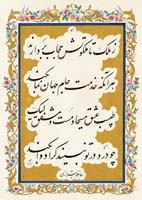 ز ملک تا ملکوتش حجاب بردارند
هر آنکه خدمت جام جهان نما بکند
طبیب عشق مسیحا دمست و مشفق لیک
چو درد در تو نبیند که را دوا بکند